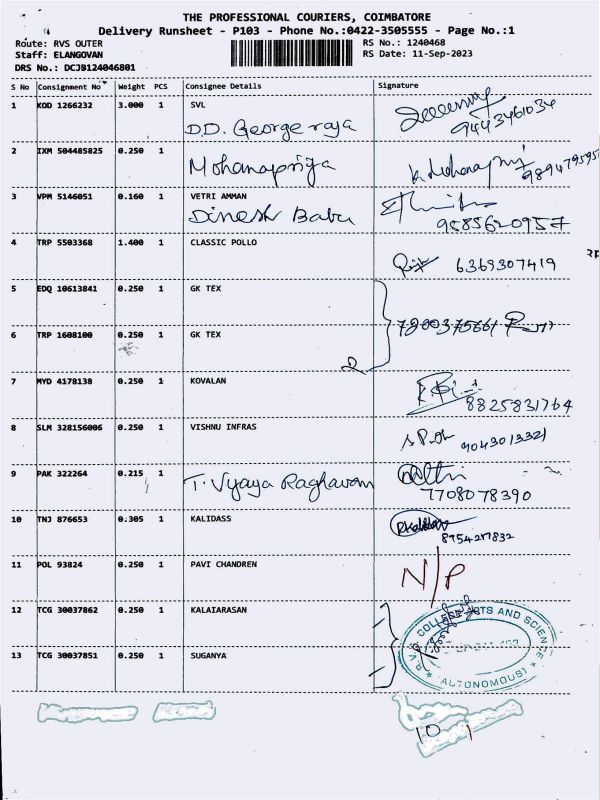 THE PROFESSIONAL COURIERS, COIMBATORE
Delivery Runsheet - P103 - Phone No.:0422-3505555 - Page No.:1
Route: RVS OUTER RS No.: 1240468
Staff: ELANGOVAN RS Date: 11-Sep-2023
DRS No.: DCJB124046801
S No Consignment No Weight PCS Consignee Details Signature
1 KOD 1266232 3.000 1 SVL
D.D. Georgeraja 9443461034
2 IXM 504485825 0.250 1
Mohanapriya 9894795957
3 VPM 5146051 0.160 1 VETRI AMMAN
Dinesh Babu 9585620957
4 TRP 5503368 1.400 1 CLASSIC POLLO
6369307419
5 EDQ 10613841 0.250 1 GK TEX
6 TRP 1608100 0.250 1 GK TEX
2
7 MYD 4178138 0.250 1 KOVALAN
8825831764
8 SLM 328156006 0.250 1 VISHNU INFRAS
9043013321
9 PAK 322264 0.215 1
T. Vijaya Raghavan
7708078390
10 TNJ 876653 0.305 1 KALIDASS
11 POL 93824 0.250 1 PAVI CHANDREN
N/P
12 TCG 30037862 0.250 1 KALAIARASAN
13 TCG 30037851 0.250 1 SUGANYA
R.V.S. COLLEGE ARTS AND SCIENCE
(AUTONOMOUS)
10 1